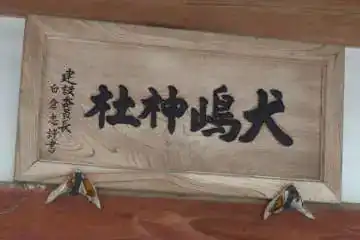 犬嶋神社
建設委員長
白倉忠詳書